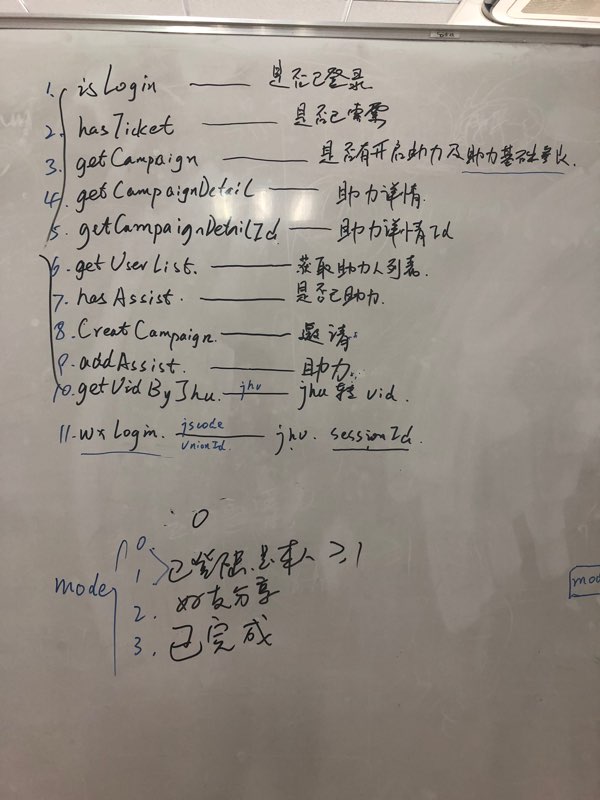 1. isLogin —— 是否已登录
2. hasTicket —— 是否已索票
3. getCampaign —— 是否有开启助力及助力基础
4. getCampaignDetail —— 助力详情
5. getCampaignDetailId —— 助力详情Id
6. getUserList. —— 获取助力人列表.
7. hasAssist. —— 是否已助力.
8. CreatCampaign. —— 邀请.
9. addAssist. —— 助力.
10. getVidByJhu. jhu —— jhu 转 vid.
11. wxLogin. jscode unionId —— jhu. sessionId.
0
mode
0
1 已 是本人 ≥1
2. 好友分享
3. 已完成
mod